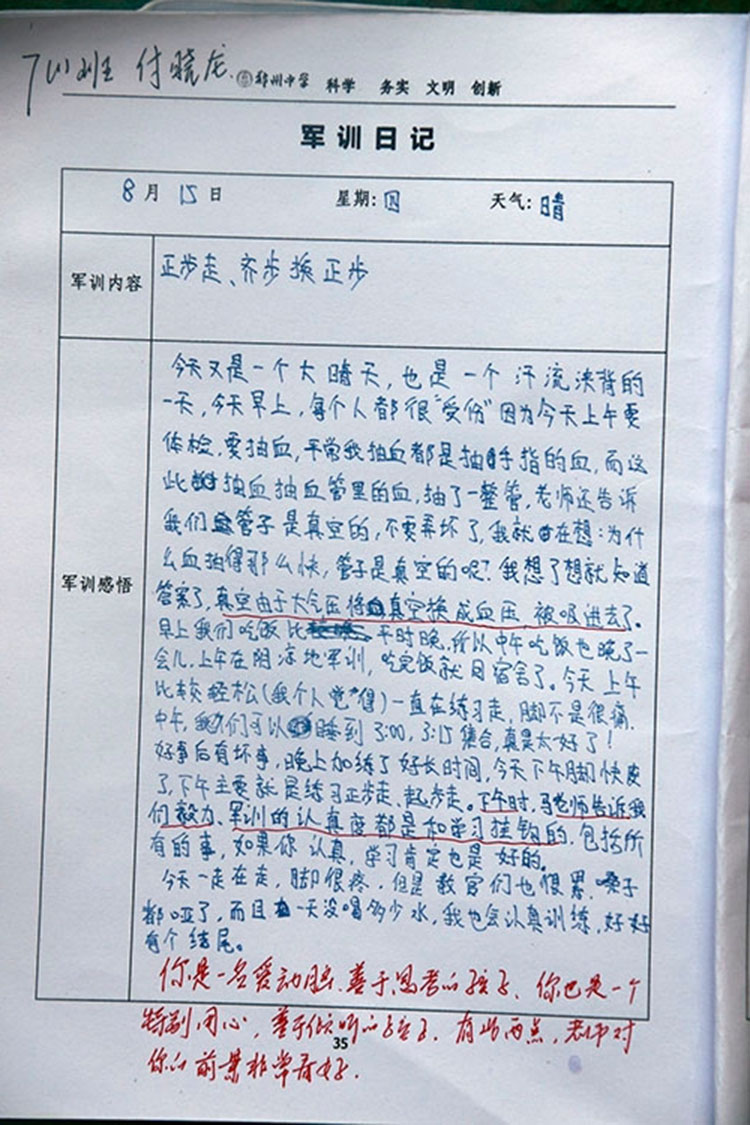 7(1)班 付晓龙
郑州中学 科学 务实 文明 创新
军训日记
8月15日 星期:四 天气:晴
军训内容
正步走、齐步换正步
军训感悟
今天又是一个大晴天,也是一个汗流浃背的
一天,今天早上,每个人都很"受伤"因为今天上午要
体检,要抽血,平常我抽血都是抽手指的血,而这
此抽血抽血管里的血,抽了一整管,老师还告诉
我们管子是真空的,不要弄坏了,我就在想:为什
么血抽得那么快,管子是真空的呢?我想了想就知道
答案了,真空由于大气压将真空换成血压,被吸进去了。
早上我们吃饭比平时晚,所以中午吃饭也晚了一
会儿,上午在阴凉地军训,吃完饭就回宿舍了。今天上午
比较轻松(我个人觉得)一直在练习走,脚不是很痛.
中午,我们可以睡到3:00,3:15集合,真是太好了!
好事后有坏事,晚上加练了好长时间,今天下午脚快废
了,下午主要就是练习正步走、起步走。下午时,马老师告诉我
们毅力、军训的认真度都是和学习挂钩的,包括所
有的事,如果你认真,学习肯定也是好的。
今天一走在走,脚很疼,但是教官们也很累,嗓子
都哑了,而且一天没喝多少水,我也会认真训练,好好
有个结尾。
你是一名爱动脑、善于思考的孩子、你也是一个
特别用心,善于倾听的孩子.有此两点,老师对
35
你的前景非常看好.